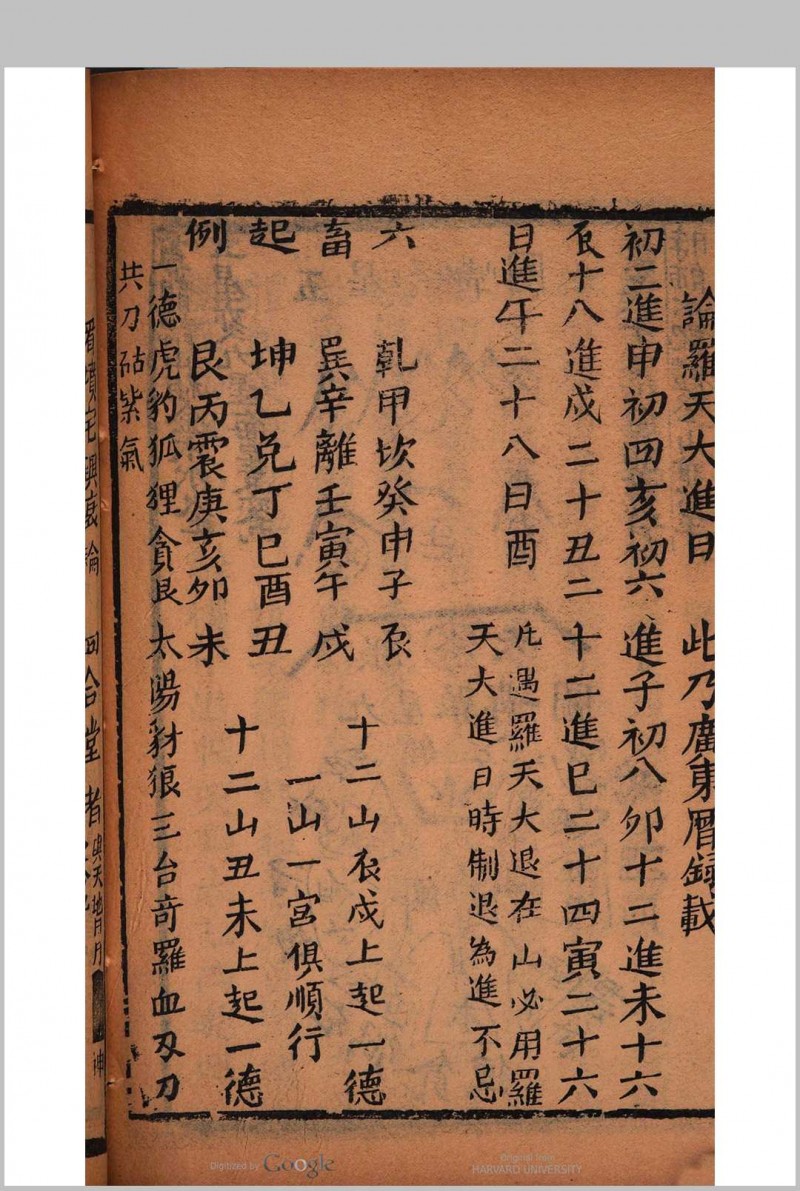 論羅天大進日 此乃廣東曆錄載
初二進申初四亥初六進子初八卯十二進未十六
辰十八進戌二十丑二十二進巳二十四寅二十六
日進午二十八日酉
凡遇羅天大退在山必用羅
天大進日時制退為進不忌
六畜起例
乾甲坎癸申子辰 十二山辰戌上起一德
巽辛離壬寅午戌 一山一宮俱順行
坤乙兌丁巳酉丑 十二山丑未上起一德
艮丙震庚亥卯未
一德虎豹狐狸貪艮太陽豺狼三台奇羅血刃刀
共刀砧紫氣
Digitized by Google
Original from
HARVARD UNIVERSITY